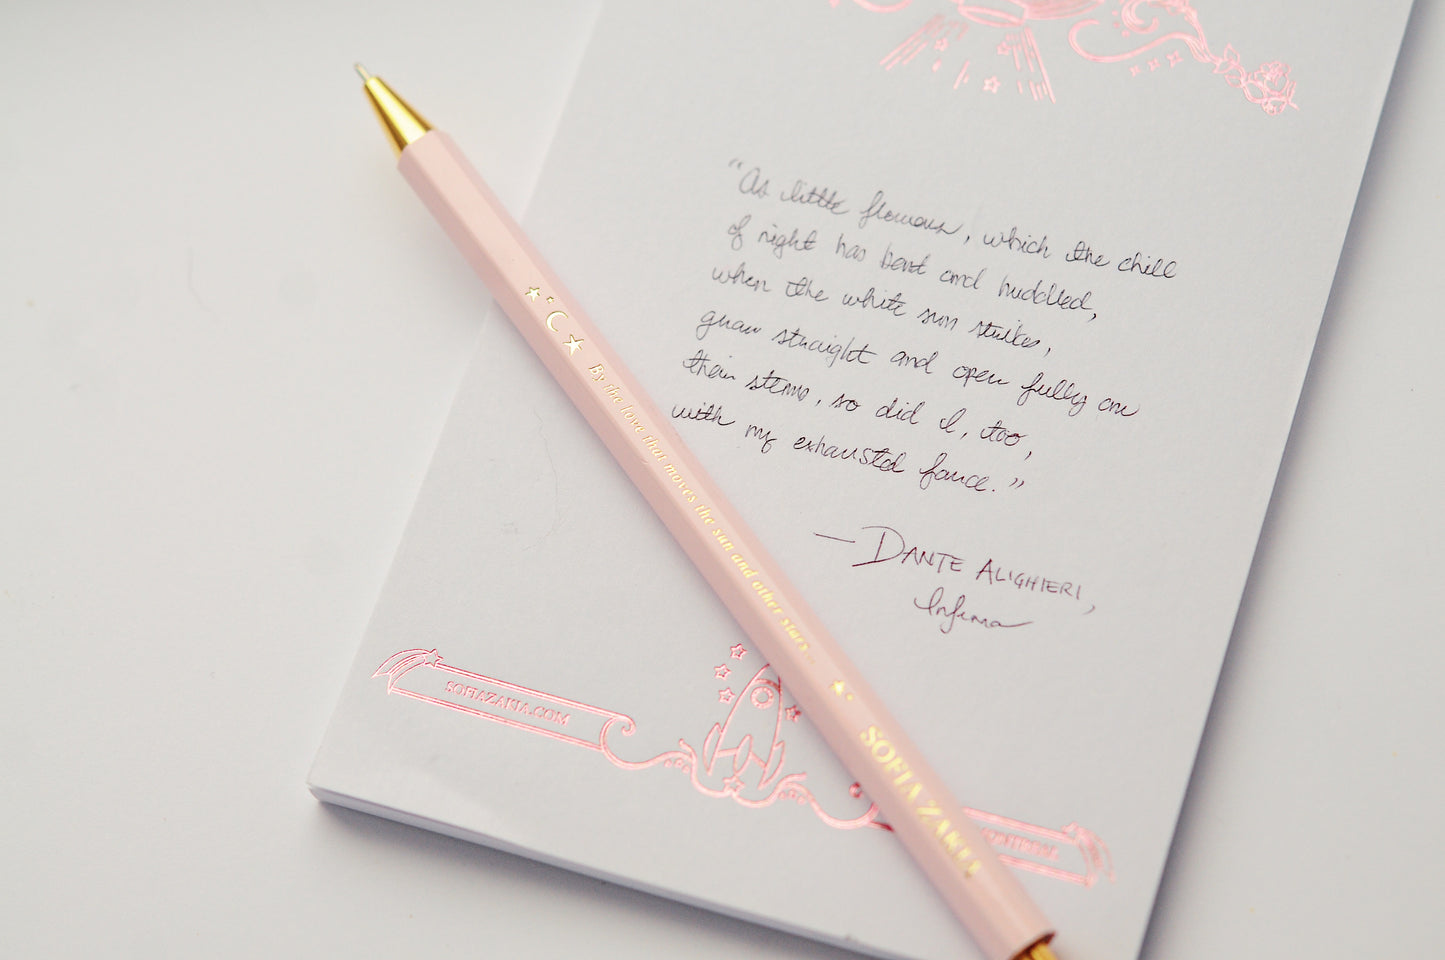 "As little flowers, which the chill
of night has bent and huddled,
when the white sun strikes,
grow straight and open fully on
their stems, so did I, too,
with my exhausted force."
— DANTE ALIGHIERI,
Inferno
By the love that moves the sun and other stars...
SOFIA ZAKIA
SOFIAZAKIA.COM